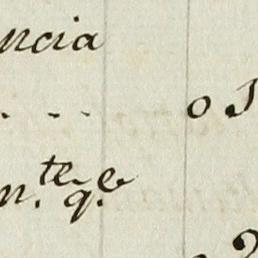 ncia
. . - - 0 5
n.te q.e